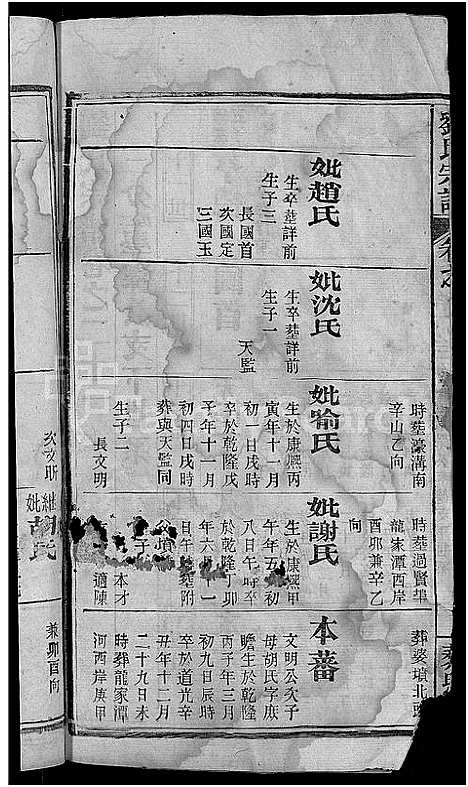 劉氏宗譜
妣趙氏
生卒塟詳前
生子三
長國首
次國定
三國玉
妣沈氏
生卒塟詳前
生子一
天監
時塟濠溝南
辛山乙向
妣喻氏
生於康熙丙
寅年十一月
初一日戌時
卒於乾隆戊
子年十一月
初四日戌時
葬與天監同
生子二
長文明
時塟過賢埠
龍家潭西岸
酉卯兼辛乙
向
妣謝氏
生於康熙甲
午年五月初
八日午時卒
於乾隆丁卯
年六
日午時塟附
父墳
本才
適陳
葬婆墳北
本蕃
文明公次子
母胡氏字庶
瞻生於乾隆
丙子年三月
初九日辰時
卒於道光辛
丑年十二月
二十九日未
時葬龍家潭
河西岸庚甲
次文昕
妣
繼
胡氏
兼卯酉向